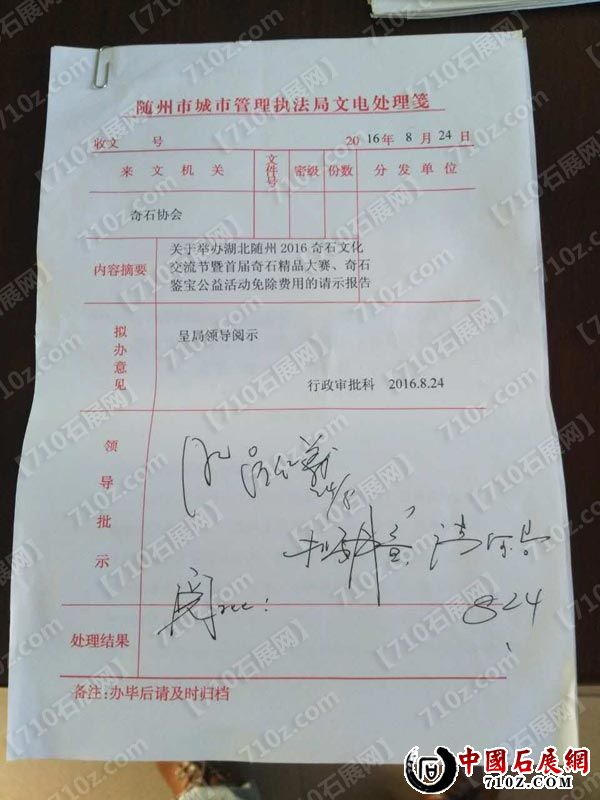 随州市城市管理执法局文电处理笺
收文 号 2016年 8 月 24 日
来文机关 文件号 密级 份数 分发单位
奇石协会
内容摘要
关于举办湖北随州2016奇石文化
交流节暨首届奇石精品大赛、奇石
鉴宝公益活动免除费用的请示报告
拟办意见
呈局领导阅示
行政审批科 2016.8.24
领导批示
阅
824
处理结果
备注:办毕后请及时归档
【710石展网】
710z.com
中國石展網
710Z.COM